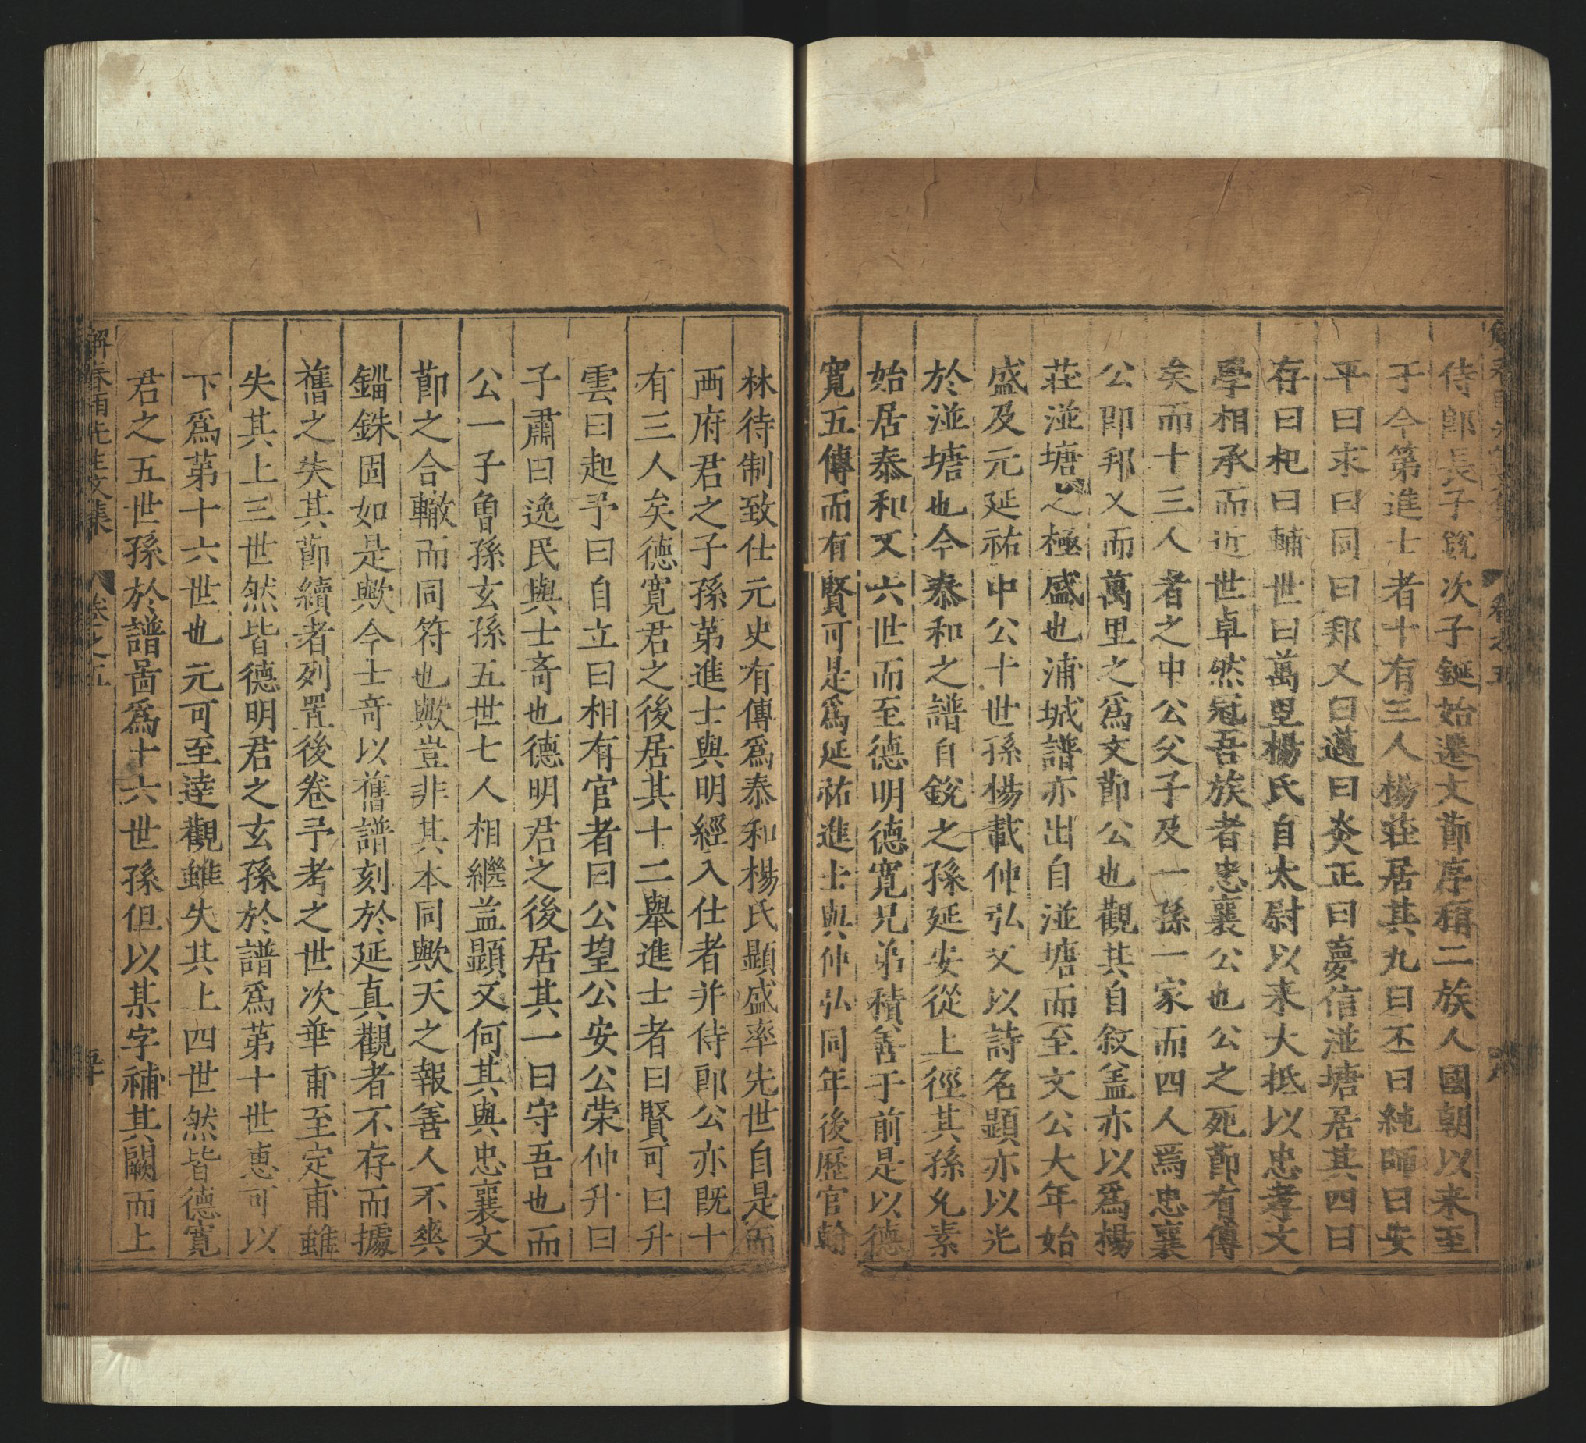 侍郎長子銳次子鋋始遷文節序稱二族人國朝以来至
于今第進士者十有三人楊莊居其九曰丕曰純師曰安
平曰求曰同曰邦乂曰邁曰炎正曰夢信湴塘居其四曰
存曰杞曰輔世曰萬里楊氏自太尉以来大抵以忠孝文
學相承而近世卓然冠吾族者忠襄公也公之死節有傳
矣而十三人者之中公父子及一孫一家而四人焉忠襄
公即邦乂而萬里之爲文節公也觀其自敘盖亦以爲楊
莊湴塘之極盛也浦城譜亦出自湴塘而至文公大年始
盛及元延祐中公十世孫楊載仲弘父以詩名顯亦以光
於湴塘也今泰和之譜自銳之孫延安從上徑其孫允素
始居泰和又六世而至德明德寬兄弟積善于前是以德
寬五傳而有賢可是爲延祐進士與仲弘同年後歷官翰
林待制致仕元史有傳爲泰和楊氏顯盛率先世自是而
西府君之子孫第進士與明經入仕者并侍郎公亦旣十
有三人矣德寬君之後居其十二舉進士者曰賢可曰升
雲曰起予曰自立曰相有官者曰公望公安公荣仲升曰
子肅曰逸民與士奇也德明君之後居其一曰守吾也而
公一子魯孫玄孫五世七人相繼益顯又何其與忠襄文
節之合轍而同符也歟豈非其本同歟天之報善人不爽
錙銖固如是歟今士奇以舊譜刻於延真觀者不存而據
舊之失其節續者列置後卷予考之世次華甫至定甫雖
失其上三世然皆德明君之玄孫於譜爲第十世惪可以
下爲第十六世也元可至逹觀雖失其上四世然皆德寬
君之五世孫於譜啚爲十六世孫但以某字補其闕而上
解春雨先生文集 卷之五